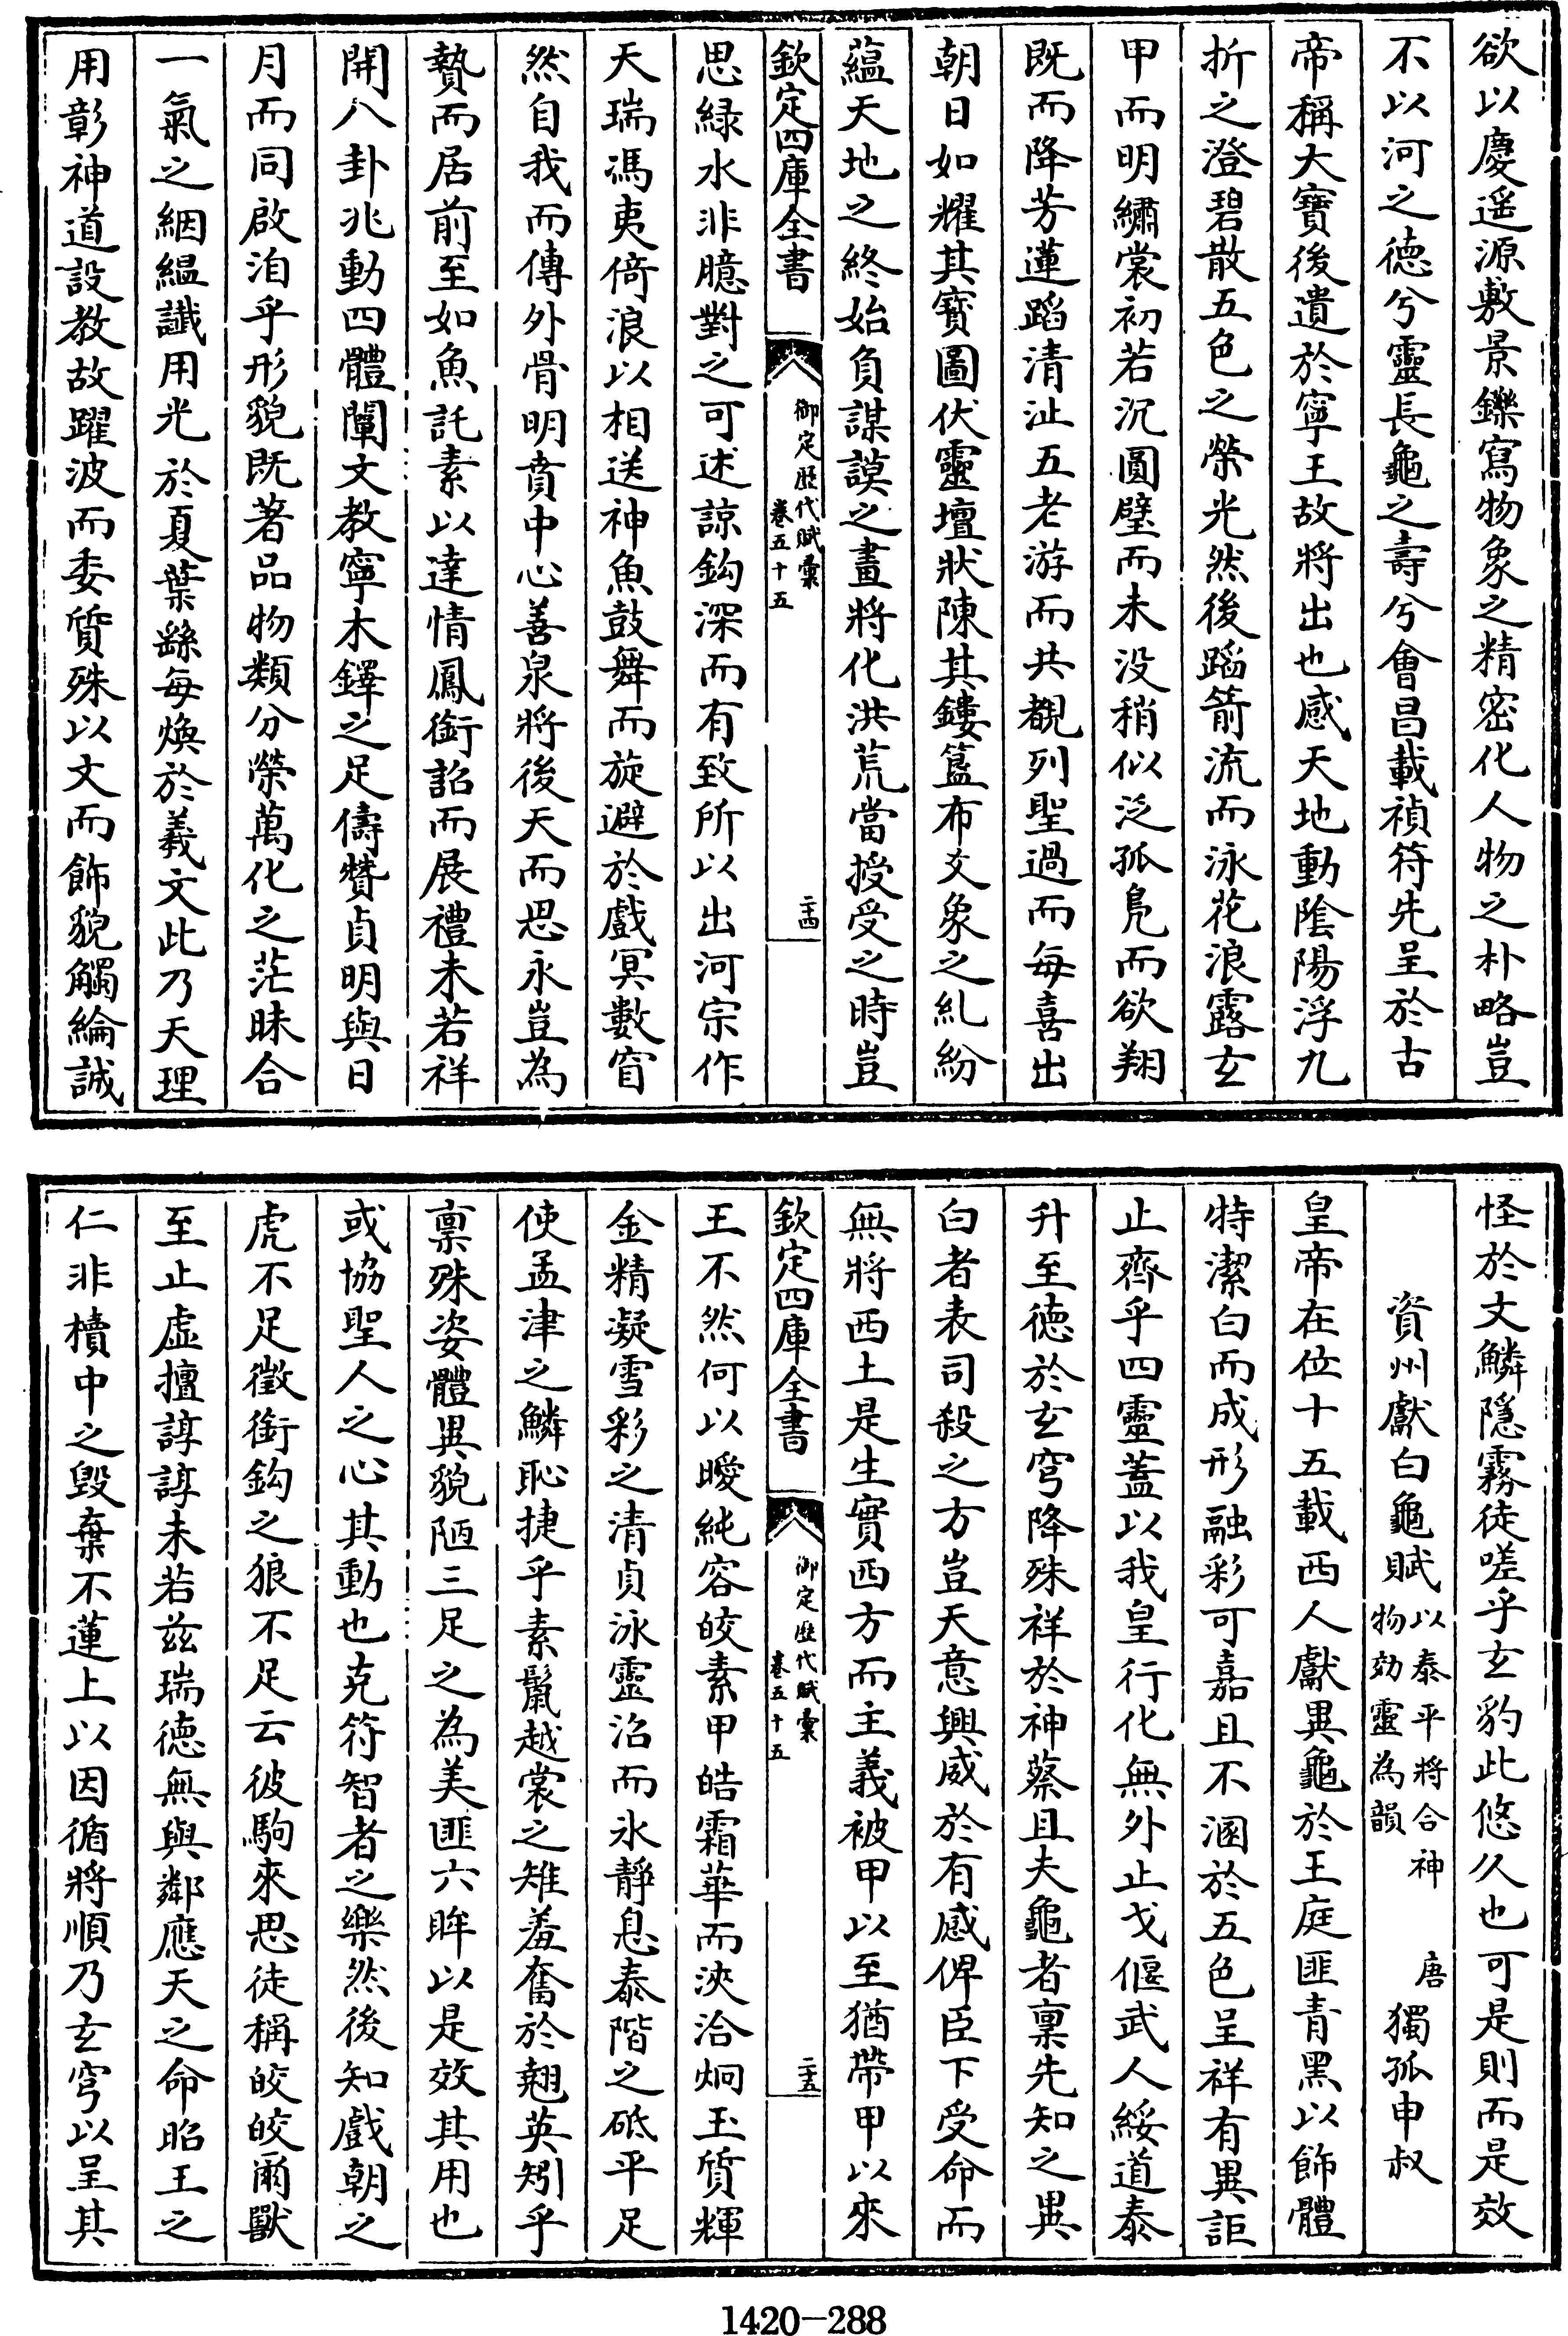 欲以慶遥源敷景鑠寫物象之精密化人物之朴略豈
不以河之德兮靈長龜之壽兮會昌載禎符先呈於古
帝稱大寶後遺於寧王故將出也感天地動陰陽浮九
折之澄碧散五色之榮光然後蹈箭流而泳花浪露玄
甲而明繡裳初若沉圓璧而未没稍似泛孤鳬而欲翔
既而降芳蓮蹈清沚五老游而共覩列聖過而每喜出
朝日如耀其寳圖伏靈壇狀陳其鏤簋布爻象之糺紛
蘊天地之終始負謀謨之畫將化洪荒當授受之時豈
欽定四庫全書
御定歴代賦彙
卷五十五
二十四
思緑水非臆對之可述諒鈎深而有致所以出河宗作
天瑞馮夷倚浪以相送神魚鼓舞而旋避於戲冥數窅
然自我而傳外骨明賁中心善泉將後天而思永豈為
贄而居前至如魚託素以達情鳳銜詔而展禮未若祥
開八卦兆動四體闡文教寧木鐸之足儔贊貞明與日
月而同啟洎乎形貌既著品物類分榮萬化之茫昧合
一氣之絪緼讖用光於夏葉繇每煥於義文此乃天理
用彰神道設教故躍波而委質殊以文而飾貌觸綸誠
怪於文鱗隠霧徒嗟乎玄豹此悠久也可是則而是效
資州獻白龜賦以泰平將合神物効靈為韻 唐 獨孤申叔
皇帝在位十五載西人獻異龜於王庭匪青黑以飾體
特潔白而成形融彩可嘉且不溷於五色呈祥有異詎
止齊乎四靈蓋以我皇行化無外止戈偃武人綏道泰
升至德於玄穹降殊祥於神蔡且夫龜者稟先知之異
白者表司殺之方豈天意興威於有感俾臣下受命而
無將西土是生實西方而主義被甲以至猶帶甲以來
欽定四庫全書
御定歴代賦彙
卷五十五
二十五
王不然何以曖純容皎素甲皓霜華而浹洽炯玉質輝
金精凝雪彩之清貞泳靈沼而氷靜息泰階之砥平足
使孟津之鱗恥捷乎素鬣越裳之雉羞奮於翹英矧乎
稟殊姿體異貌陋三足之為美匪六眸以是效其用也
或協聖人之心其動也克符智者之樂然後知戲朝之
虎不足徵銜鈎之狼不足云彼駒來思徒稱皎皎爾獸
至止虛擅諄諄未若兹瑞德無與鄰應天之命昭王之
仁非櫝中之毀棄不蓮上以因循將順乃玄穹以呈其
1420-288